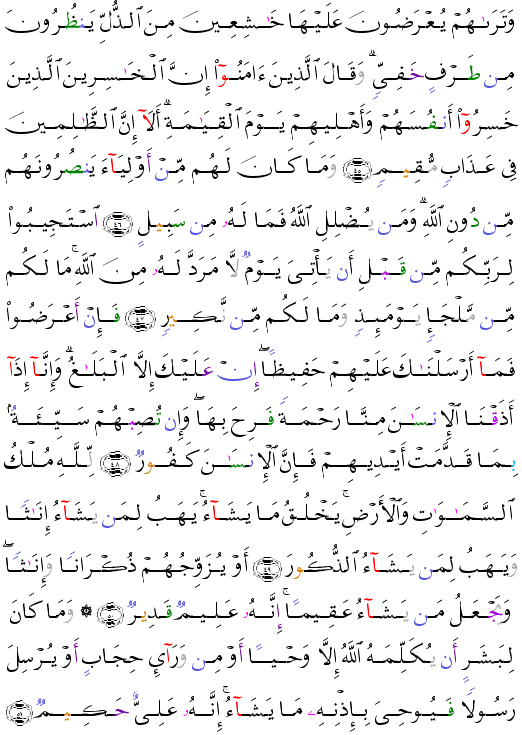 وَتَرَىٰهُمْ يُعْرَضُونَ عَلَيْهَا خَٰشِعِينَ مِنَ ٱلذُّلِّ يَنظُرُونَ
مِن طَرْفٍ خَفِىٍّ ۗ وَقَالَ ٱلَّذِينَ ءَامَنُوٓا۟ إِنَّ ٱلْخَٰسِرِينَ ٱلَّذِينَ
خَسِرُوٓا۟ أَنفُسَهُمْ وَأَهْلِيهِمْ يَوْمَ ٱلْقِيَٰمَةِ ۗ أَلَآ إِنَّ ٱلظَّٰلِمِينَ
فِى عَذَابٍ مُّقِيمٍ ﴿٤٥﴾ وَمَا كَانَ لَهُم مِّنْ أَوْلِيَآءَ يَنصُرُونَهُم
مِّن دُونِ ٱللَّهِ ۗ وَمَن يُضْلِلِ ٱللَّهُ فَمَا لَهُۥ مِن سَبِيلٍ ﴿٤٦﴾ ٱسْتَجِيبُوا۟
لِرَبِّكُم مِّن قَبْلِ أَن يَأْتِىَ يَوْمٌ لَّا مَرَدَّ لَهُۥ مِنَ ٱللَّهِ ۚ مَا لَكُم
مِّن مَّلْجَإٍ يَوْمَئِذٍ وَمَا لَكُم مِّن نَّكِيرٍ ﴿٤٧﴾ فَإِنْ أَعْرَضُوا۟
فَمَآ أَرْسَلْنَٰكَ عَلَيْهِمْ حَفِيظًا ۖ إِنْ عَلَيْكَ إِلَّا ٱلْبَلَٰغُ ۗ وَإِنَّآ إِذَآ
أَذَقْنَا ٱلْإِنسَٰنَ مِنَّا رَحْمَةً فَرِحَ بِهَا ۖ وَإِن تُصِبْهُمْ سَيِّئَةٌۢ
بِمَا قَدَّمَتْ أَيْدِيهِمْ فَإِنَّ ٱلْإِنسَٰنَ كَفُورٌ ﴿٤٨﴾ لِّلَّهِ مُلْكُ
ٱلسَّمَٰوَٰتِ وَٱلْأَرْضِ ۚ يَخْلُقُ مَا يَشَآءُ ۚ يَهَبُ لِمَن يَشَآءُ إِنَٰثًا
وَيَهَبُ لِمَن يَشَآءُ ٱلذُّكُورَ ﴿٤٩﴾ أَوْ يُزَوِّجُهُمْ ذُكْرَانًا وَإِنَٰثًا ۖ
وَيَجْعَلُ مَن يَشَآءُ عَقِيمًا ۚ إِنَّهُۥ عَلِيمٌ قَدِيرٌ ﴿٥٠﴾ ۞ وَمَا كَانَ
لِبَشَرٍ أَن يُكَلِّمَهُ ٱللَّهُ إِلَّا وَحْيًا أَوْ مِن وَرَآئِ حِجَابٍ أَوْ يُرْسِلَ
رَسُولًا فَيُوحِىَ بِإِذْنِهِۦ مَا يَشَآءُ ۚ إِنَّهُۥ عَلِىٌّ حَكِيمٌ ﴿٥١﴾